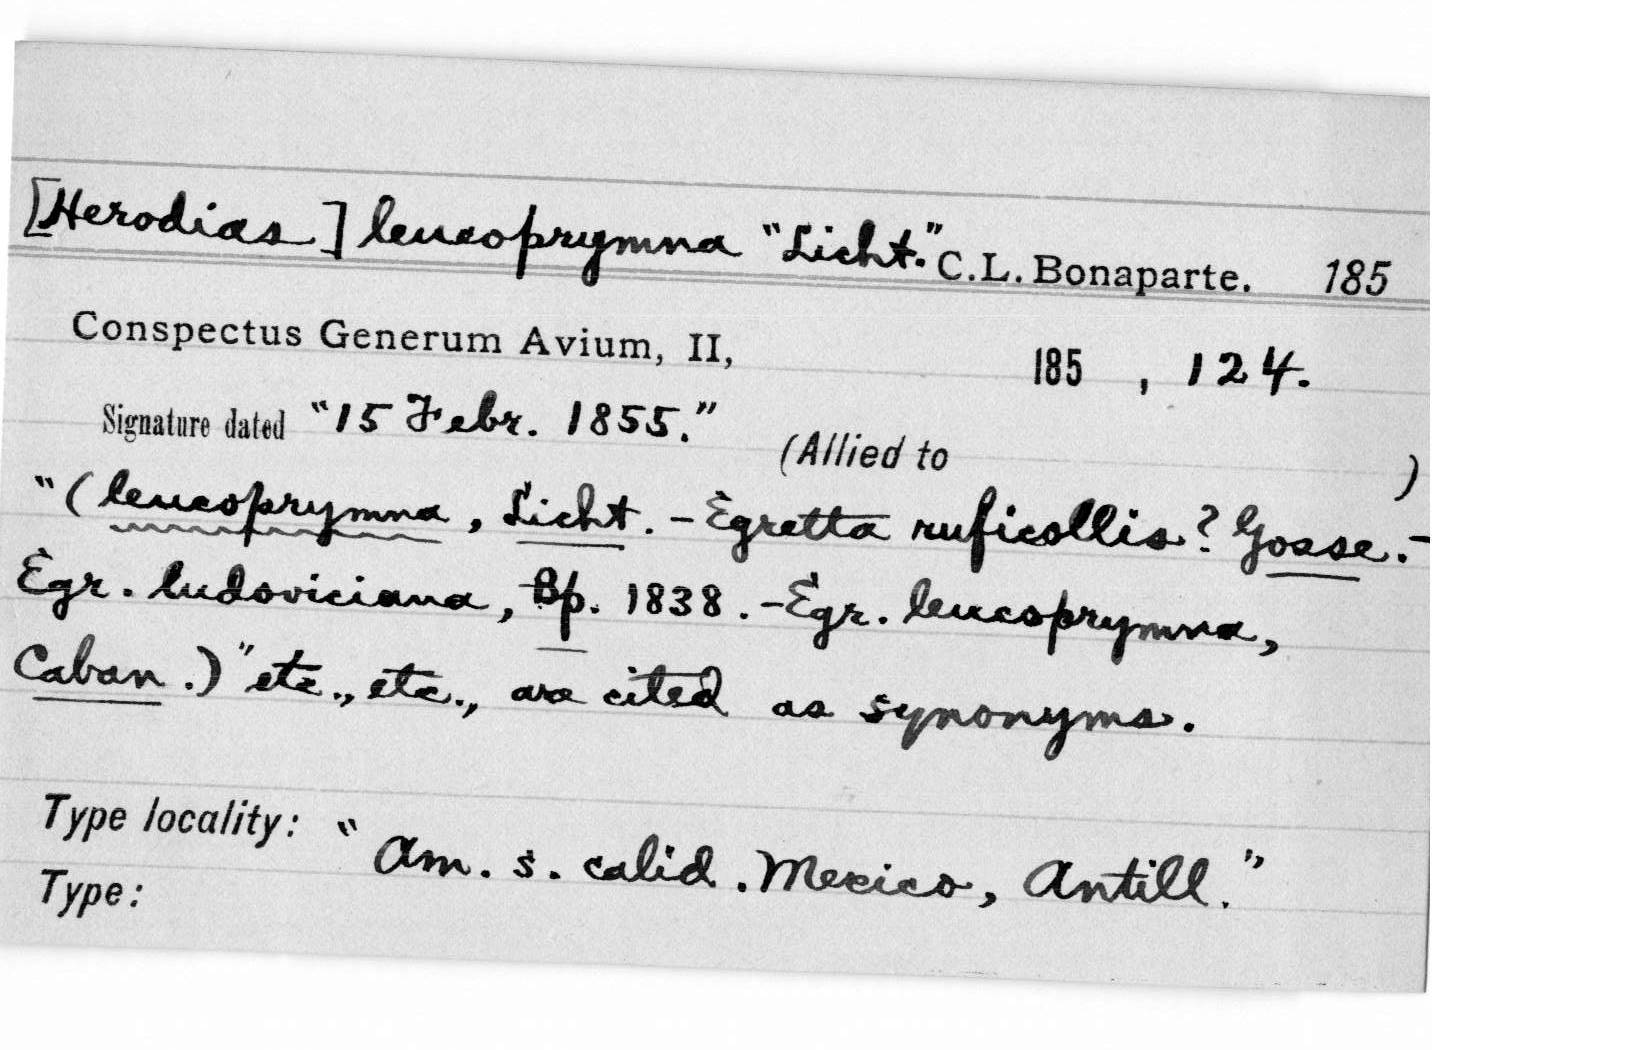 [Herodias] leucoprymna "Licht." C.L. Bonaparte. 185
Conspectus Generum Avium, II, 185 , 124.
Signature dated "15 Febr. 1855." (Allied to )
"(leucoprymna, Licht. - Egretta ruficollis? Gosse. -
Egr. ludoviciana, Bp. 1838. - Egr. leucoprymna,
Caban.)" etc., etc., are cited as synonyms.
Type locality: "Am. s. calid. Mexico, Antill."
Type: